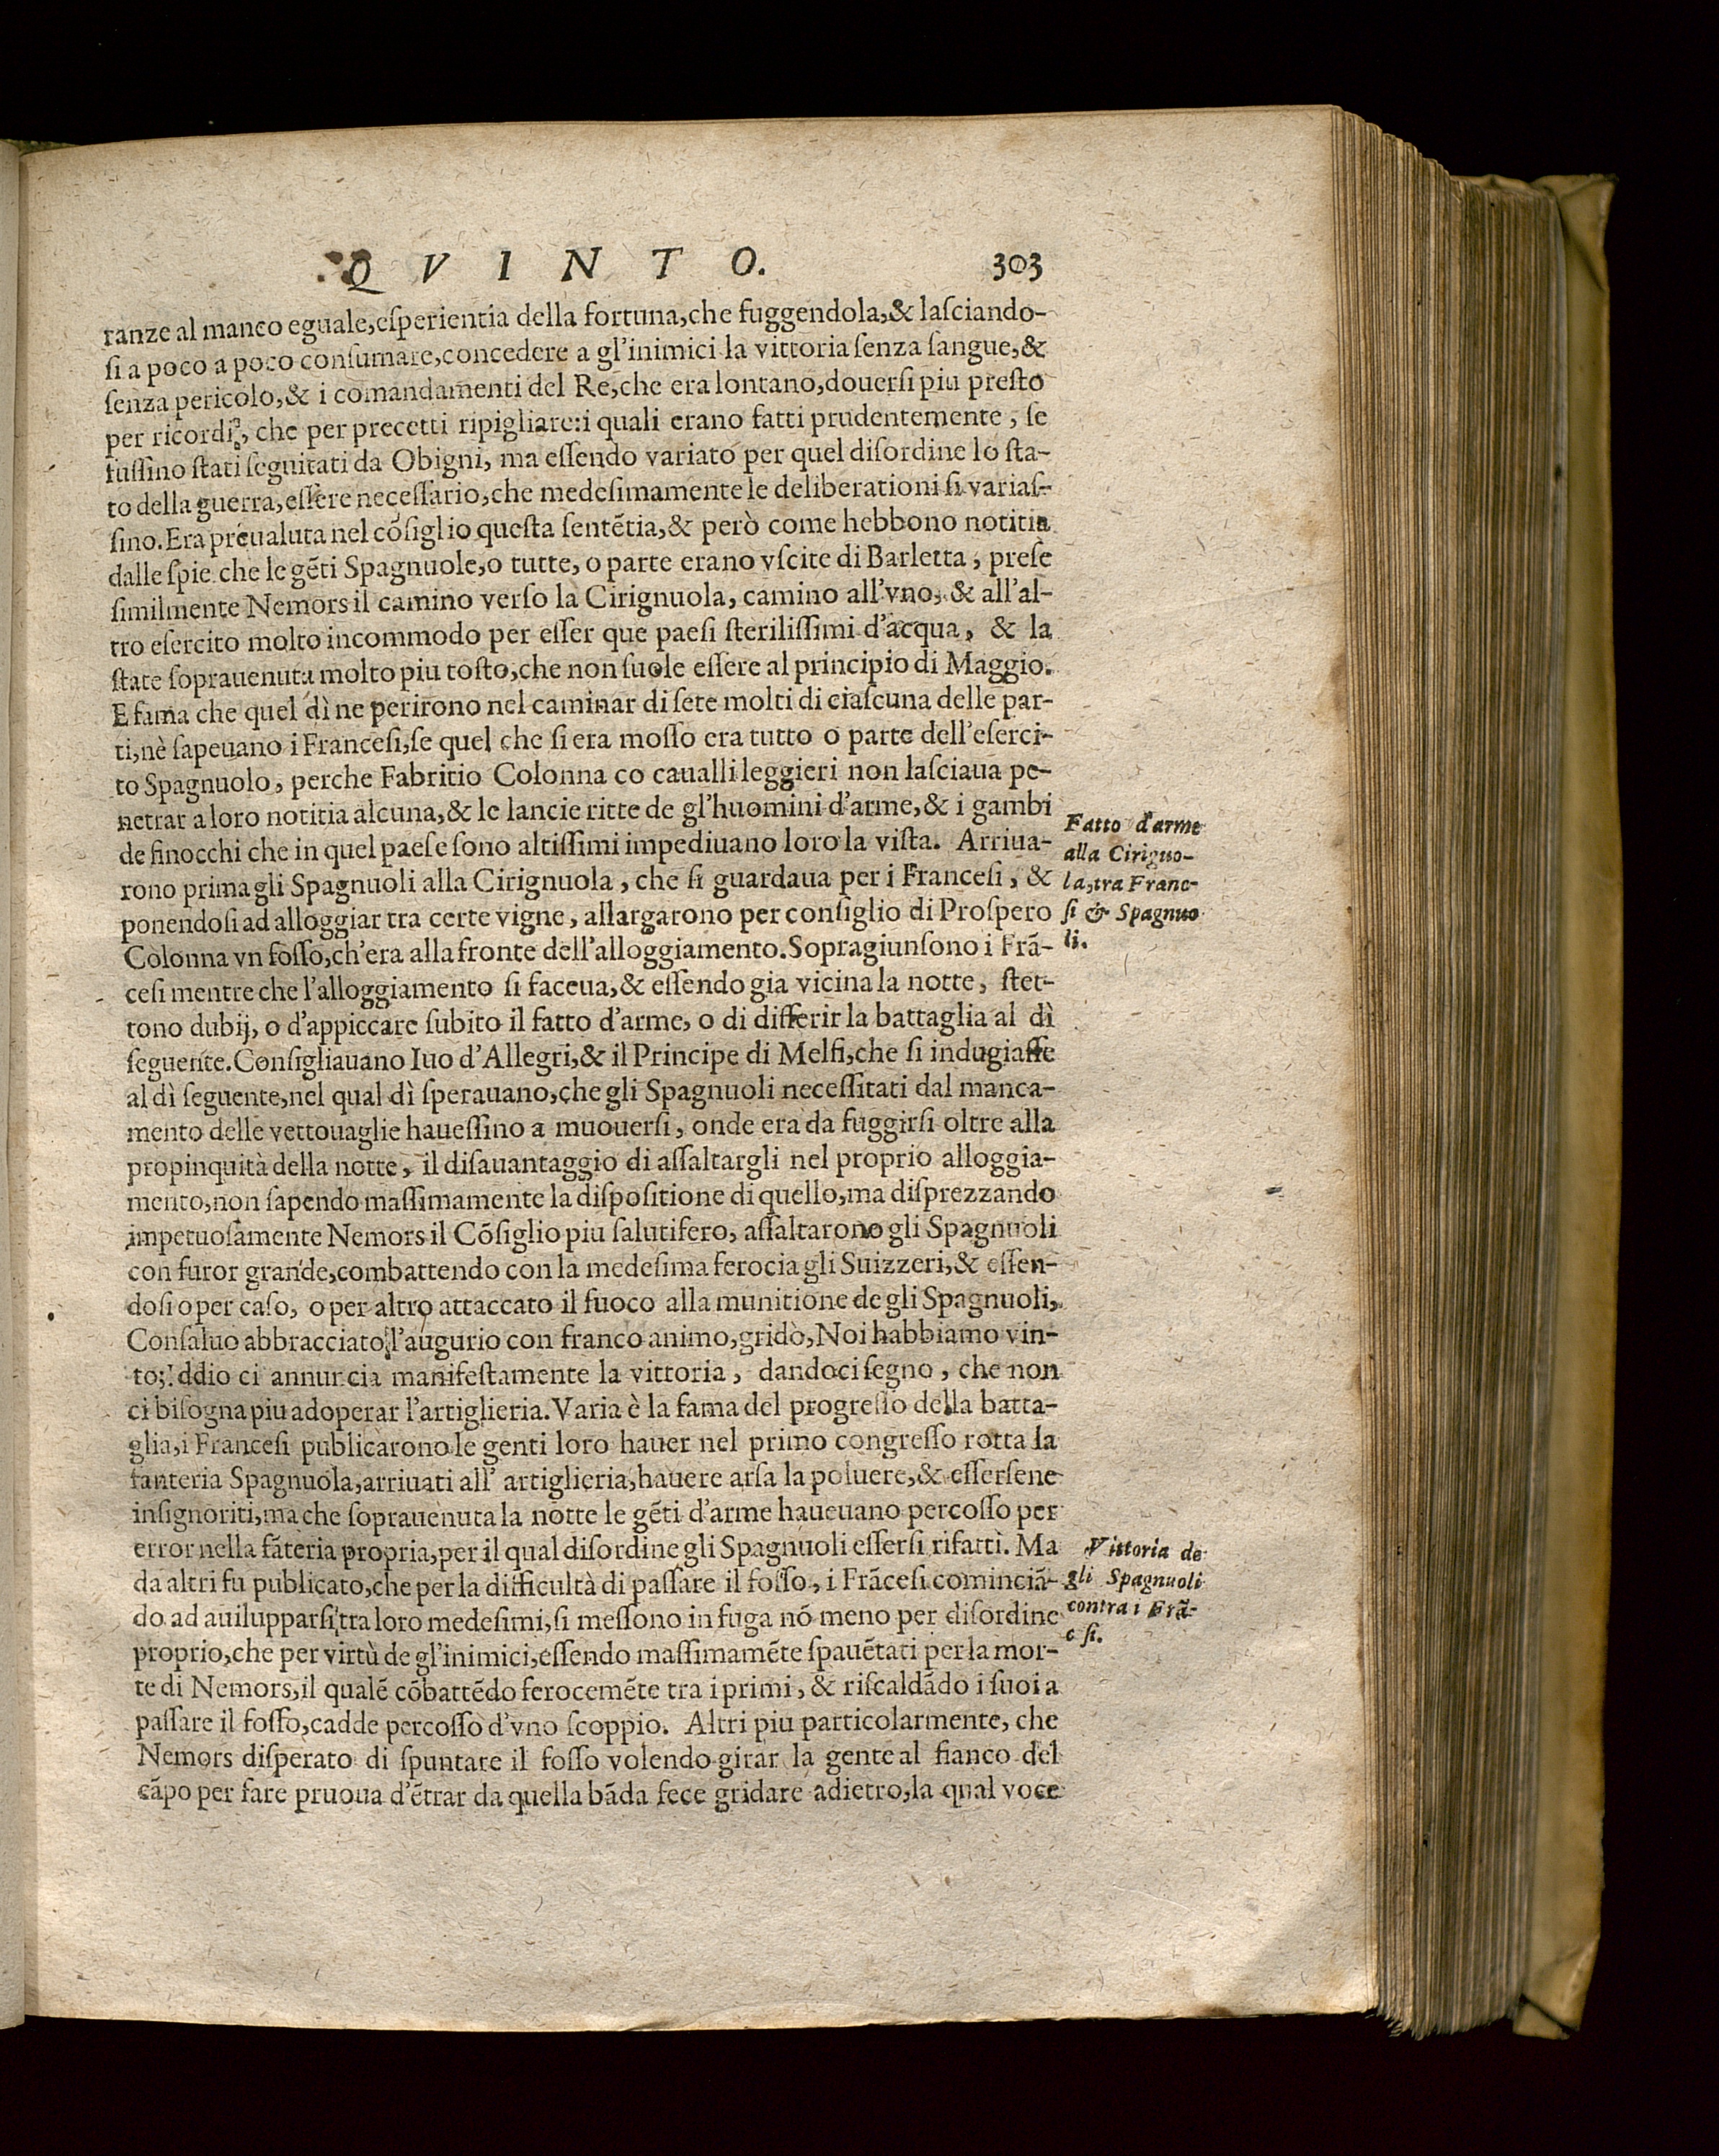 QVINTO. 303
ranze al manco eguale, eſperientia della fortuna, che fuggendola, & laſciando-
ſi a poco a poco conſumare, concedere a gl'inimici la vittoria ſenza ſangue, &
ſenza pericolo, & i comandamenti del Re, che era lontano, douerſi piu preſto
per ricordi, che per precetti ripigliare: i quali erano fatti prudentemente, ſe
fuſſino ſtati ſeguitati da Obigni, ma eſſendo variato per quel diſordine lo ſta-
to della guerra, eſſere neceſſario, che medeſimamente le deliberationi ſi variaſ-
ſino. Era preualuta nel cõſiglio queſta ſentẽtia, & però come hebbono notitia
dalle ſpie che le gẽti Spagnuole, o tutte, o parte erano vſcite di Barletta, preſe
ſimilmente Nemors il camino verſo la Cirignuola, camino all'vno, & all'al-
tro eſercito molto incommodo per eſſer que paeſi ſteriliſſimi d'acqua, & la
ſtate ſoprauenuta molto piu toſto, che non ſuole eſſere al principio di Maggio.
E fama che quel dì ne perirono nel caminar di ſete molti di ciaſcuna delle par-
ti, nè ſapeuano i Franceſi, ſe quel che ſi era moſſo era tutto o parte dell'eſerci-
to Spagnuolo, perche Fabritio Colonna co caualli leggieri non laſciaua pe-
netrar a loro notitia alcuna, & le lancie ritte de gl'huomini d'arme, & i gambi
de finocchi che in quel paeſe ſono altiſſimi impediuano loro la viſta. Arriua-
rono prima gli Spagnuoli alla Cirignuola, che ſi guardaua per i Franceſi, &
ponendoſi ad alloggiar tra certe vigne, allargarono per conſiglio di Proſpero
Colonna vn foſſo, ch'era alla fronte dell'alloggiamento. Sopragiunſono i Frã-
ceſi mentre che l'alloggiamento ſi faceua, & eſſendo gia vicina la notte, ſtet-
tono dubij, o d'appiccare ſubito il fatto d'arme, o di differir la battaglia al dì
ſeguente. Conſigliauano Iuo d'Allegri, & il Principe di Melfi, che ſi indugiaſſe
al dì ſeguente, nel qual dì ſperauano, che gli Spagnuoli neceſſitati dal manca-
mento delle vettouaglie haueſſino a muouerſi, onde era da fuggirſi oltre alla
propinquità della notte, il diſauantaggio di aſſaltargli nel proprio alloggia-
mento, non ſapendo maſſimamente la diſpoſitione di quello, ma diſprezzando
impetuoſamente Nemors il Cõſiglio piu ſalutifero, aſſaltarono gli Spagnuoli
con furor grande, combattendo con la medeſima ferocia gli Suizzeri, & eſſen-
doſi o per caſo, o per altro attaccato il fuoco alla munitione de gli Spagnuoli,
Conſaluo abbracciato l'augurio con franco animo, gridò, Noi habbiamo vin-
to; Iddio ci annuncia manifeſtamente la vittoria, dandoci ſegno, che non
ci biſogna piu adoperar l'artiglieria. Varia è la fama del progreſſo della batta-
glia, i Franceſi publicarono le genti loro hauer nel primo congreſſo rotta la
fanteria Spagnuola, arriuati all' artiglieria, hauere arſa la poluere, & eſſerſene
inſignoriti, ma che ſoprauenuta la notte le gẽti d'arme haueuano percoſſo per
error nella fãteria propria, per il qual diſordine gli Spagnuoli eſſerſi rifatti. Ma
da altri fu publicato, che per la difficultà di paſſare il foſſo, i Frãceſi cominciã-
do ad auilupparſi tra loro medeſimi, ſi meſſono in fuga nõ meno per diſordine
proprio, che per virtù de gl'inimici, eſſendo maſſimamẽte ſpauẽtati per la mor-
te di Nemors, il qualẽ cõbattẽdo ferocemẽte tra i primi, & riſcaldãdo i ſuoi a
paſſare il foſſo, cadde percoſſo d'vno ſcoppio. Altri piu particolarmente, che
Nemors diſperato di ſpuntare il foſſo volendo girar la gente al fianco del
cãpo per fare pruoua d'ẽtrar da quella bãda fece gridare adietro, la qual voce
Fatto d'arme
alla Cirignuo-
la, tra France-
ſi & Spagnuo
li.
Vittoria de
gli Spagnuoli
contra i Frã-
ceſi.